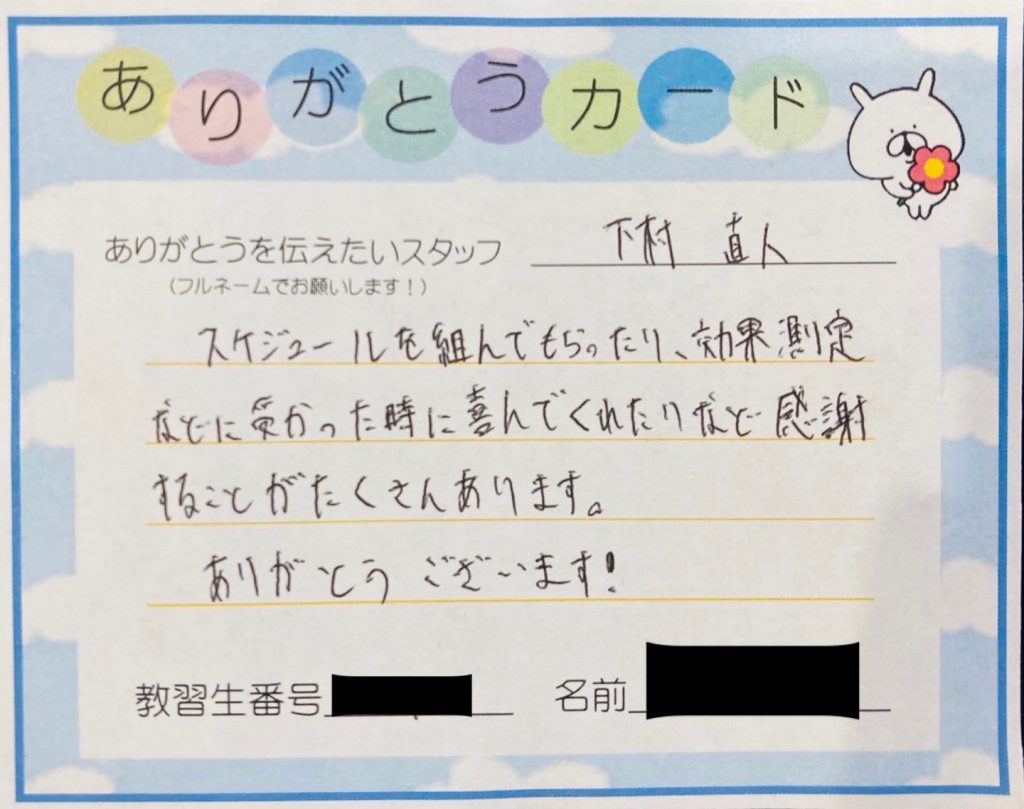 ありがとうカード
ありがとうを伝えたいスタッフ 下村 直人
(フルネームでお願いします!)
スケジュールを組んでもらったり、効果測定
などに受かった時に喜んでくれたりなど感謝
することがたくさんあります。
ありがとうございます!
教習生番号 名前